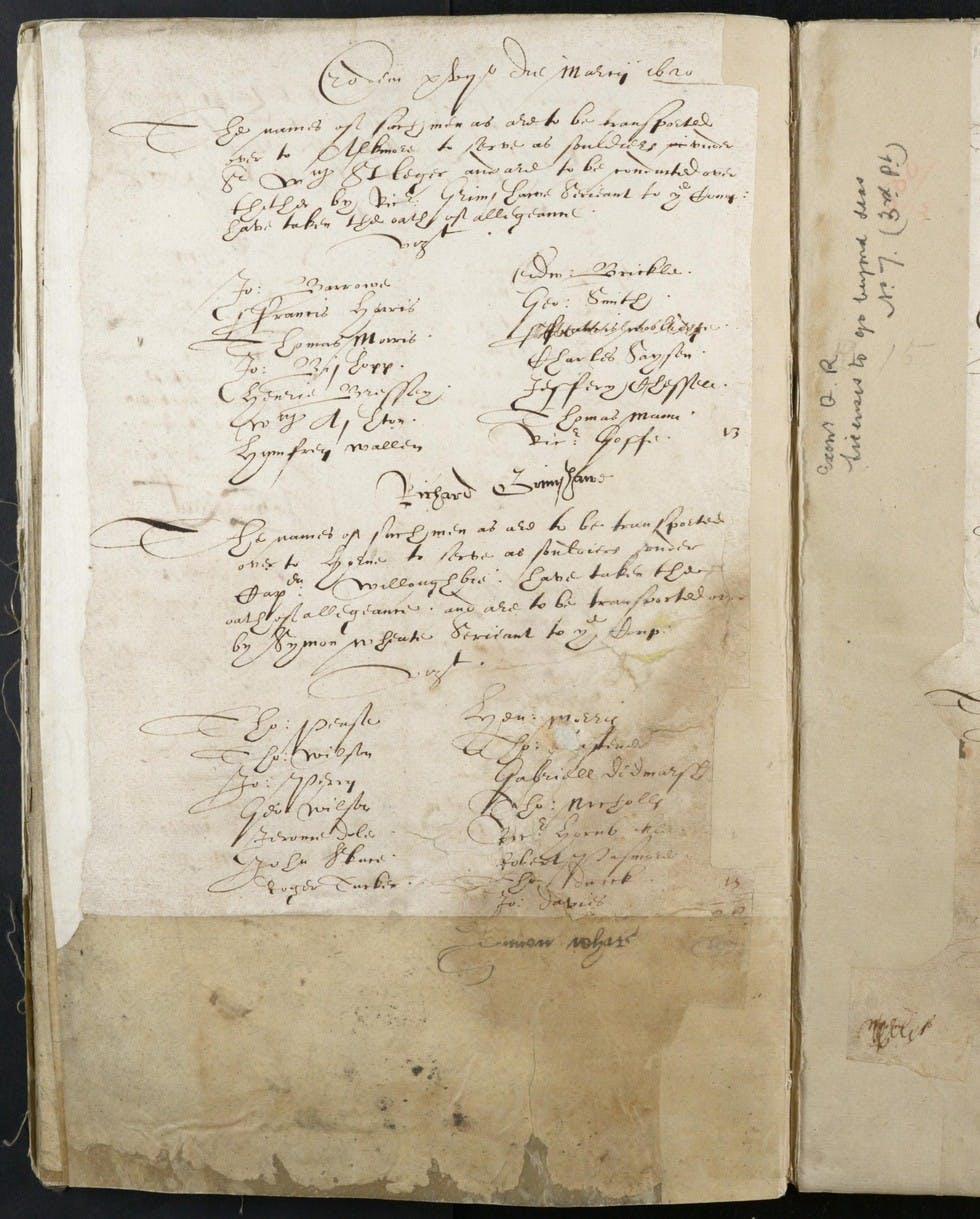 die Marcij 1620
The names of such men as are to be transported
over to Alkmore to serve as souldiers under
Sr Wm St leger and are to be conducted over
thither by Ricr: Grimshawe Seriant to ye Comp:
have taken the oath of allegeance.
vizt.
Jo: Barrowe
Francis Harris
Thomas Morris
Jo: Bishopp.
Henrie Bressey
Wm Ashton.
Humfrey Wallen
Edw: Brickle.
Geo: Smith
Charles Saysen.
Jeffery Chessell.
Thomas Mann
Ricr: Goffe.
13
Richard Grimshawe
The names of such men as are to be transported
over to to serve as souldiers under
Capten: Willoughbie: have taken the
oath of allegeance. and are to be transported over
by Symon Wheate Seriant to ye Comp.
vizt.
Tho: Pense
Tho: Wilson
Jo: Perry
Geo: Wilson
Jerome dole
John Skner.
Roger Tucker.
Hen: Morris
Tho:
Gabriell Didmarsh
Tho: Nicholls
Ricr:
Robert
Tho:
Jo: Davies
15
Simon
Excr Q. R
Licenses to go beyond seas
No 7. (3rd Pt)